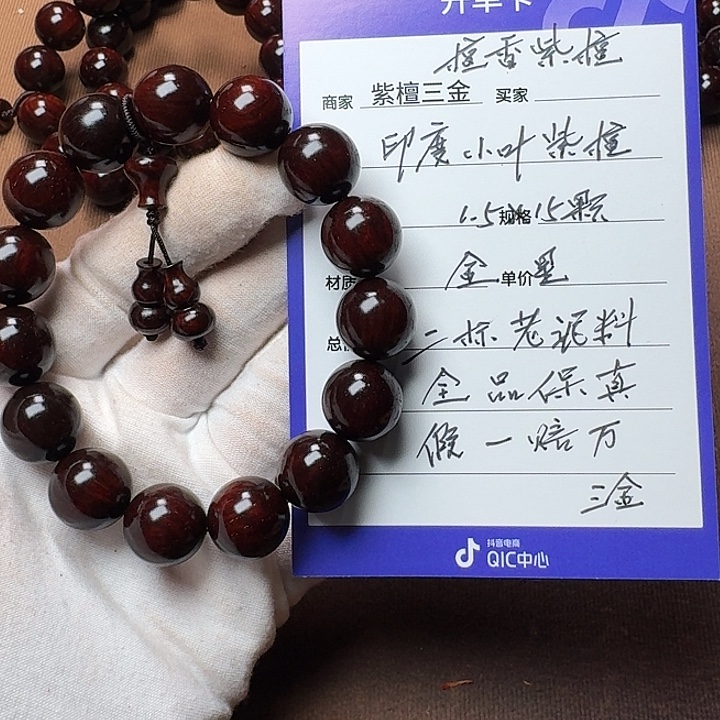 开单卡
檀香紫檀
商家 紫檀三金 买家
印度小叶紫檀
1.5规格15颗
材质 金 单价 星
二标老泥料
全品保真
假一赔万
三金
抖音电商
QIC中心